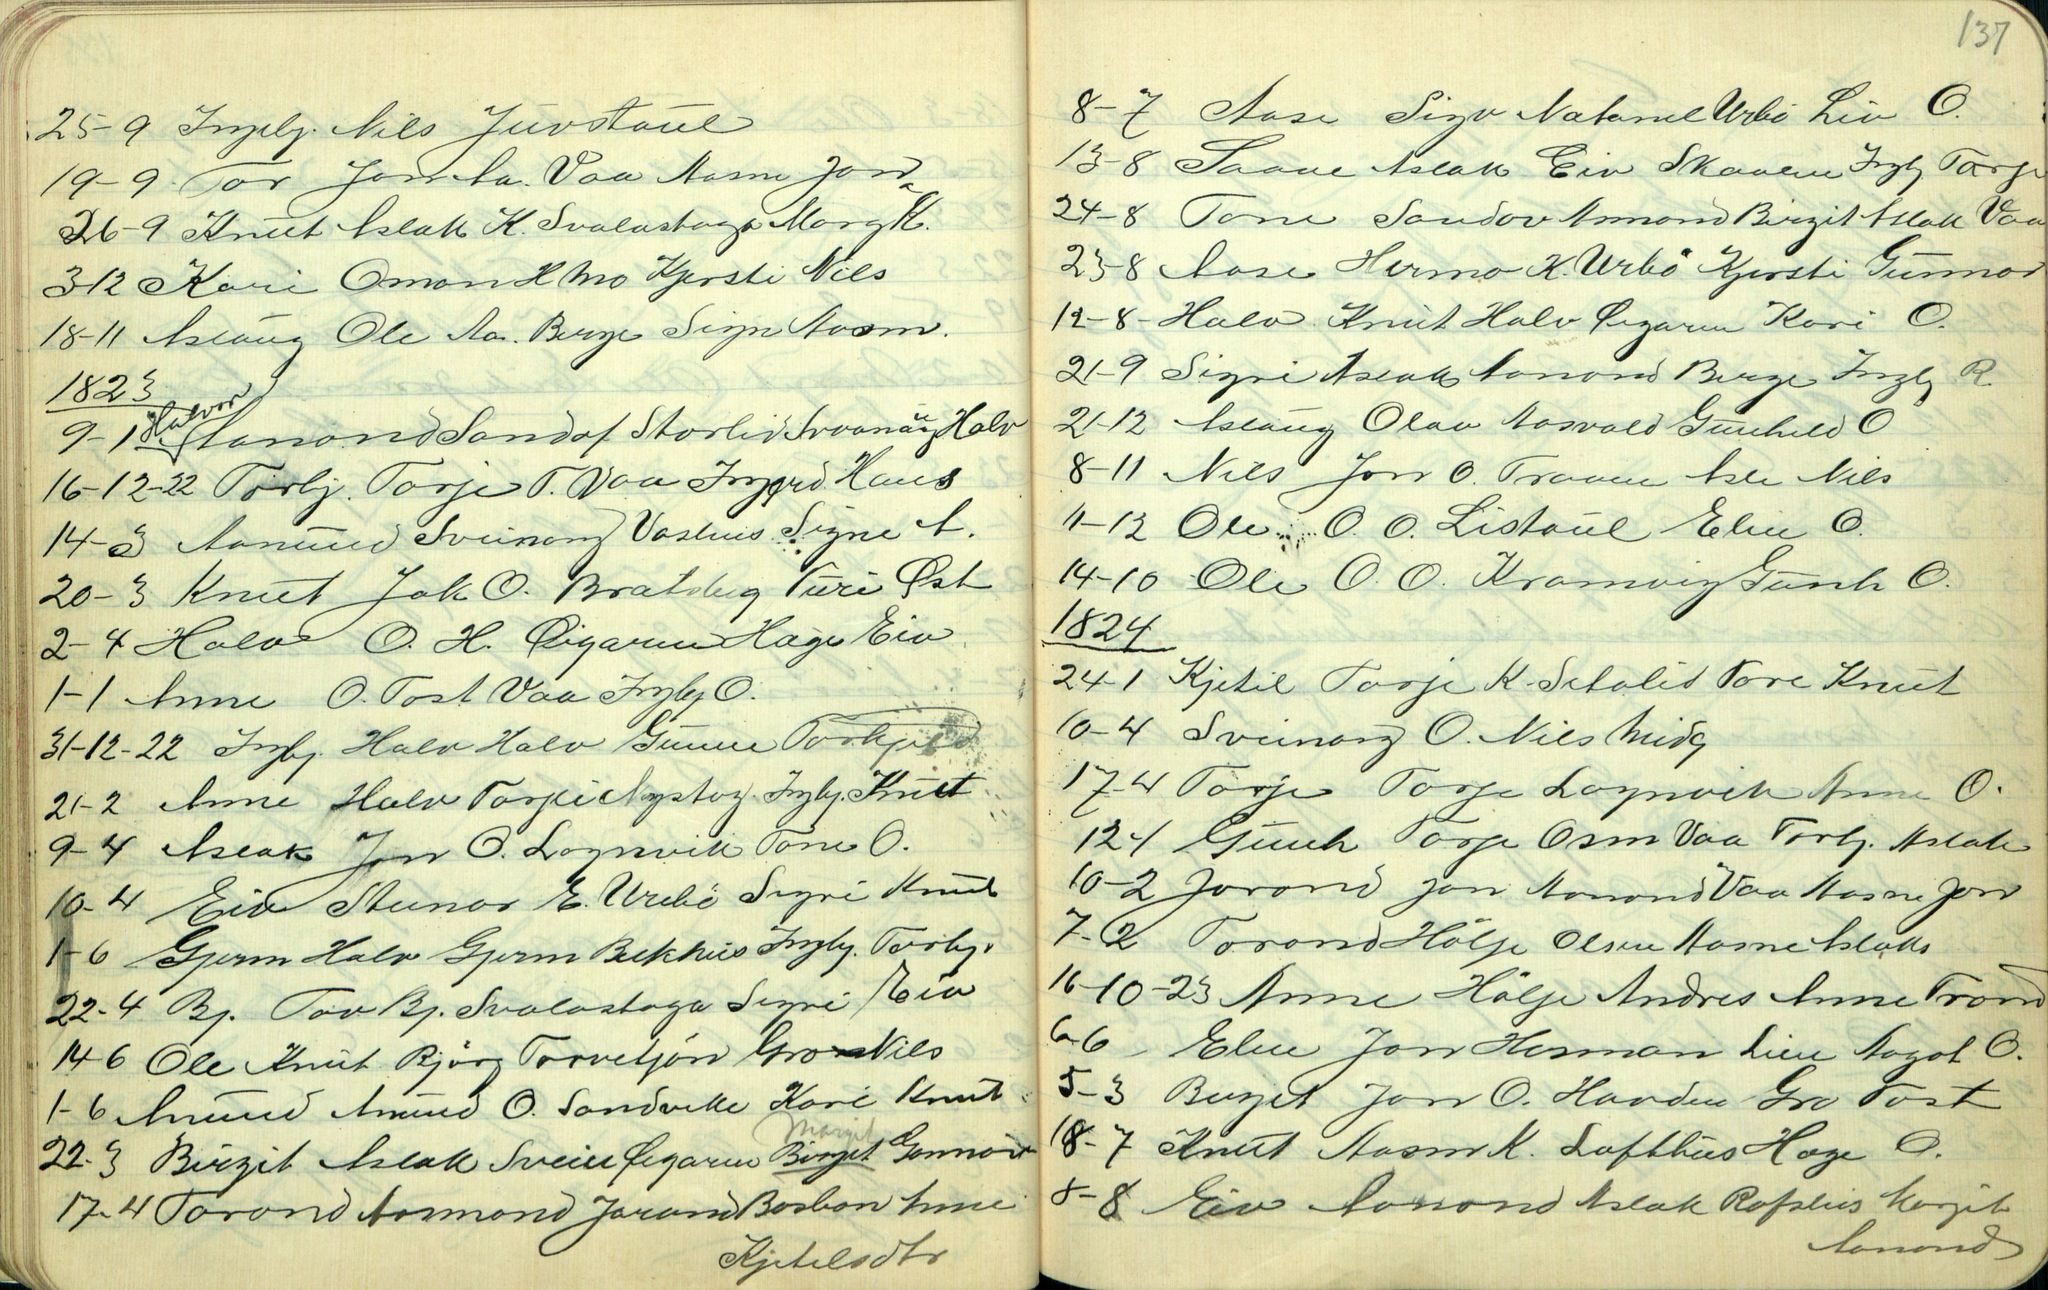 25-9 Ingebj. Nils Juvstaul
19-9 Tor Jon Aa. Vaa Aasne Jon
26-9 Knut Aslak K. Svalastoga Marg K.
3-12 Kari Oman H Mo Kjersti Nils
18-11 Aslaug Ole Aa. Berge Sign Aasm.
1823
Halvor
9-1 Aanond Sandof Storlid Svanaug Halv
16-12-22 Torbj. Torje T. Vaa Ingerd Hans
14-3 Aanund Sveinong Vashus Signe A.
20-3 Knut Jak O. Bratsberg Turi Øst
2-4 Halv O. H. Øigaren Hæge Eiv
1-1 Anne O. Tost Vaa Ingbj O.
31-12-22 Ingbj. Halv Halv Gunne Torkjeld
21-2 Anne Halv Torgei Nystog Ingbj. Knut
9-4 Aslak Jon O. Lognvik Tone O.
10-4 Eiv Steinar E. Urbö Sigri Knut
1-6 Gjerm Halv Gjerm Bekhus Ingbj. Torbj.
22-4 Bj. Tov Bj. Svalastoga Sigri Eiv
14-6 Ole Knut Björg Torvetjön Gro Nils
1-6 Anund Anund O. Sandvike Kari Knut
Margit
22-3 Birgit Aslak Svein Øigaren Birgit Gonnar
17-4 Torond Aanmond Jarand Bosbon Anne
Kjetilsdtr
137
8-7 Aase Sigv Natanel Urbö Liv O.
13-8 Saave Aslak Eiv Skaalen Ingbj Torge
24-8 Tone Sandov Anmond Birgit Aslak Vaa
23-8 Aase Hermo K. Urbö Kjersti Gunnar
12-8 Halv Knut Halv Øigaren Kari O.
21-9 Sigri Aslak Aanond Berge Ingbj R
21-12 Aslaug Olav Aasvald Gunhild O
8-11 Nils Jon O. Traaen Asle Nils
11-12 Ole O. O. Listaul Elen O.
14-10 Ole O. O. Kromvig Gunh O.
1824
24-1 Kjetil Torje K. Setalid Tore Knut
10-4 Sveinong O. Nils Midg
17-4 Torje Torje Lognvik Anne O.
12-1 Gunh Torje Osm Vaa Torbj. Aslak
10-2 Jorond Jon Aanond Vaa Aasne Jon
7-2 Torond Hölje Olsen Aasne Aslaks
16-10-23 Anne Hölje Andres Anne Trond
6-6 Elen Jon Herman Lien Aagot O.
5-3 Bergit Jon O. Haavden Gro Tost
18-7 Knut Aasm K. Lofthus Hæge O.
8-8 Eiv Aanond Aslak Rafshus Margit
Aanond